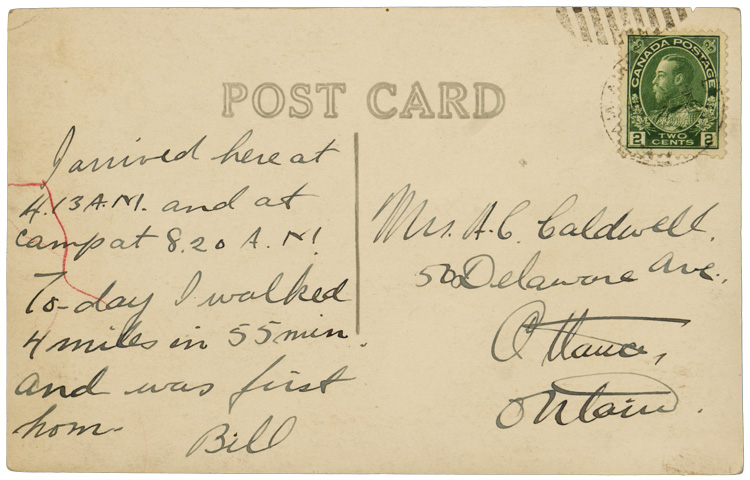 CANADA POSTAGE
2 TWO CENTS 2
POST CARD
I arrived here at
4.13 A.M. and at
camp at 8.20 A.M.
To-day I walked
4 miles in 55 min.
and was first
hom.
Bill
Mrs. A.C. Caldwell.
500 Delaware Ave.,
Ottawa,
Ontario.